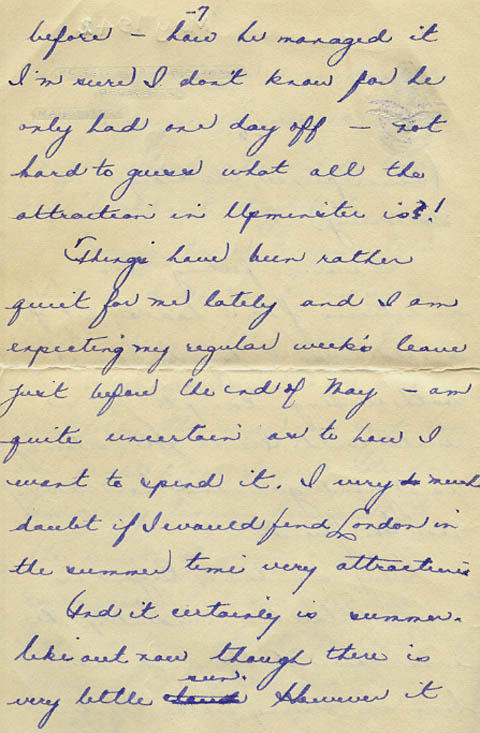 -7
before - how he managed it
I'm sure I don't know for he
only had one day off - not
hard to guess what all the
attraction in Upminster is!
Things have been rather
quiet for me lately and I am
expecting my regular week's leave
just before the end of May - am
quite uncertain as to how I
want to spend it. I very much
doubt if I would find London in
the summer time very attractive
And it certainly is summer-
like out now though there is
very little sun. However it